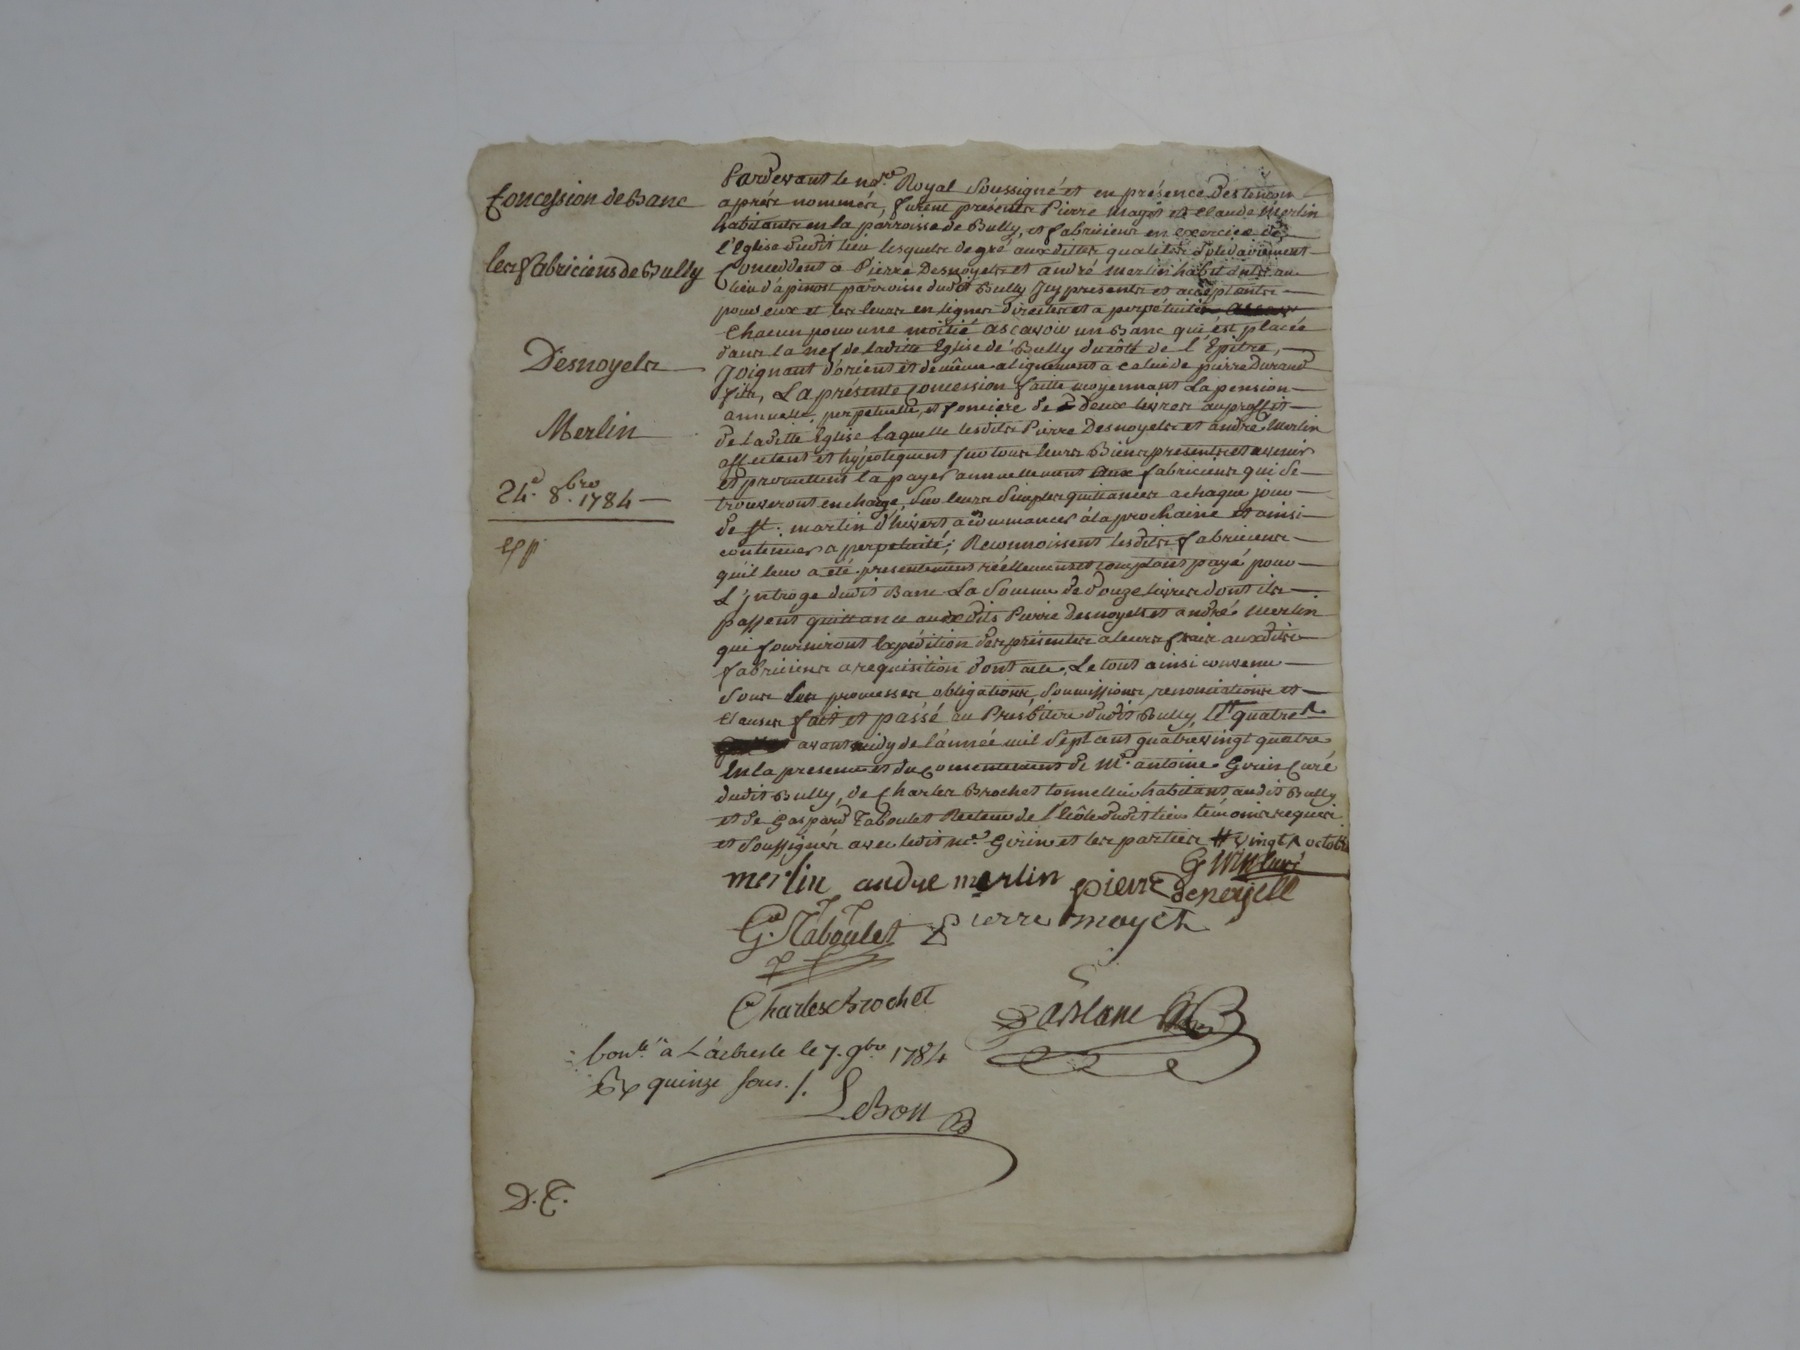 Concession de Banc
les fabriciens de Bully
Desnoyels
Merlin
24e. 8bre. 1784
Exp.
Pardevant le nore. Royal Soussigné et en présence des temoins
après nommés, furent présents Pierre mayet et Claude Merlin
habitants en la parroisse de Bully, et fabriciens en exercice de
l'Eglise dudit lieu lesquels de gré auxdittes qualités solidairement
Concedent a Pierre Desnoyels et andré merlin habitants au
lieu d'apinost parroisse dudit Bully Icy presents et acceptants
pour eux et les leurs en lignes directes et a perpetuité
Chacun pour une moitié ascavoir un Banc qui est placée
dans la nef de laditte Eglise de Bully du côté de l'Epitre,
Joignant d'orient et de même alignement a celui de pierre Durand
fils, La présente Concession faitte moyennant La pension
annuelle, perpetuelle, et fonciere de deux livres au proffit
de laditte Eglise laquelle lesdits Pierre Desnoyels et andré Merlin
affectent et hypotequent sur tous leurs Biens presents et avenir
et promettent la payer annuellement aux fabriciens qui se
trouveront en charge, sur leurs simples quittances a chaque jour
de St. martin d'hivert a commancer à la prochaine et ainsi
continuer a perpetuité; Reconnoissent lesdits fabriciens
quil leur a été presentement réellement et comptant payé pour
L'Introge dudit Banc La Somme de douze livres dont ils
passent quittance auxdits Pierre Desnoyels et andré Merlin
qui fourniront Expédition des présentes a leurs frais auxdits
fabriciens a requisition dont acte, Le tout ainsi convenu
sous les promesses obligations, soumissions, renonciations et
clauses fait et passé au Présbitere dudit Bully, le # quatre
avant midy de l'année mil sept cent quatrevingt quatre
En la presence et du consentement de Mre. antoine Girin Curé
dudit Bully, de Charles Brochet tonnellier habitant audit Bully
et de Gaspard Taboulet Recteur de l'Ecôle dudit lieu témoins requis
et soussignés avec ledit Mre. Girin et les parties # vingt octobre
Girin Curé
merlin andre merlin pierre denoyell
G. Taboulet Pierre mayet
Charles Brochet
Conlé. à L'arbresle le 7. 9bre. 1784
Rx quinze sous./.
LeBon
D. C.